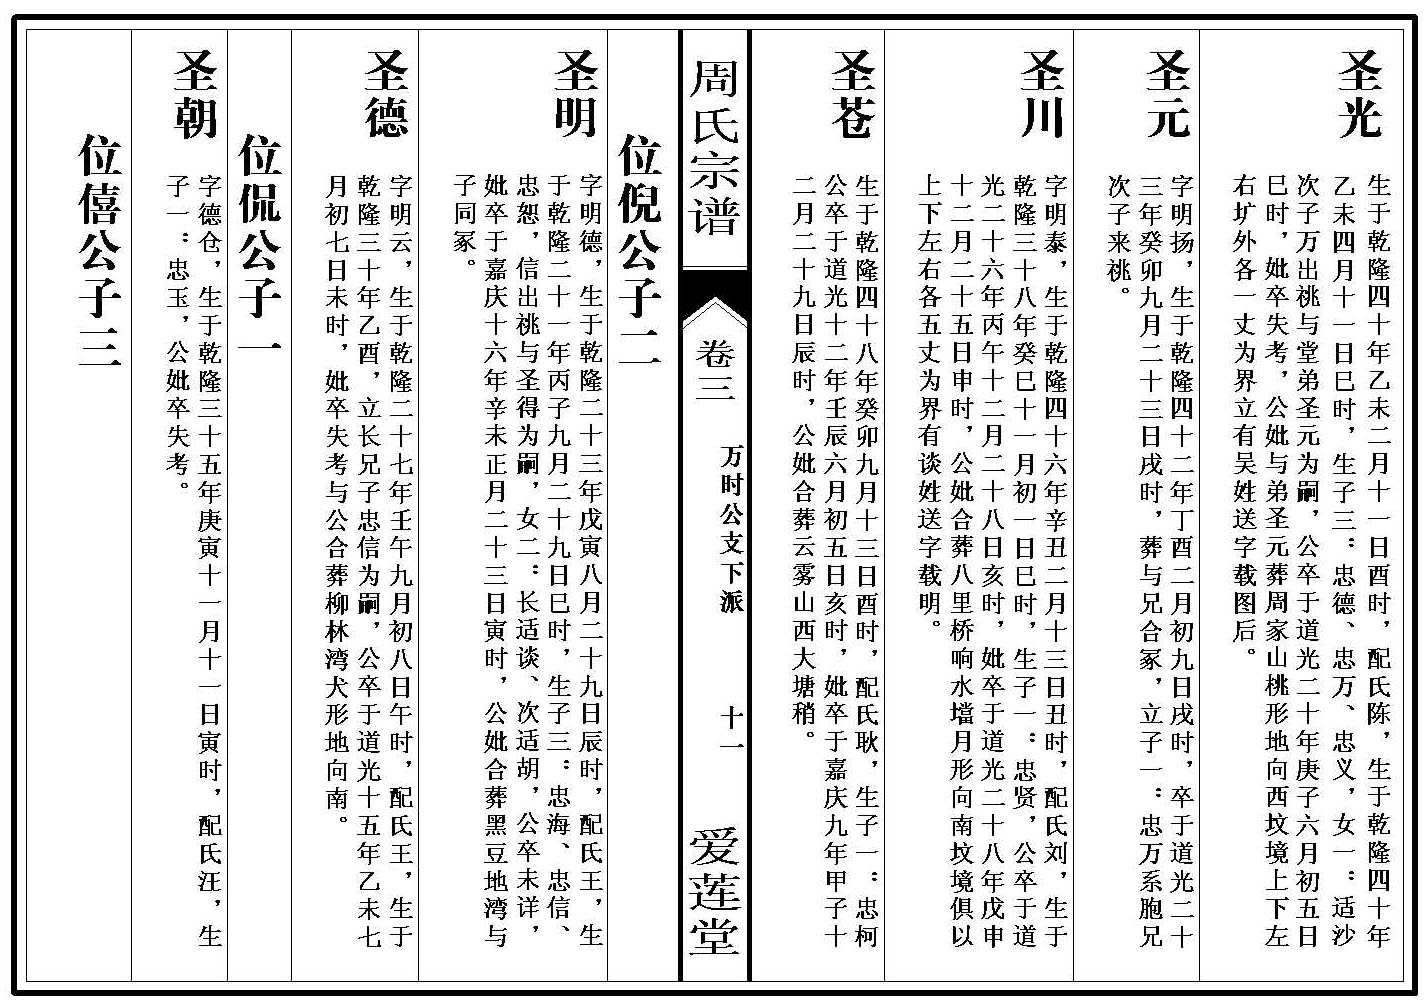 圣光
生于乾隆四十年乙未二月十一日酉时，配氏陈，生于乾隆四十年
乙未四月十一日巳时，生子三：忠德、忠万、忠义，女一：适沙
次子万出祧与堂弟圣元为嗣，公卒于道光二十年庚子六月初五日
巳时，妣卒失考，公妣与弟圣元葬周家山桃形地向西坟境上下左
右圹外各一丈为界立有吴姓送字载图后。
圣元
字明扬，生于乾隆四十二年丁酉二月初九日戌时，卒于道光二十
三年癸卯九月二十三日戌时，葬与兄合冢，立子一：忠万系胞兄
次子来祧。
圣川
字明泰，生于乾隆四十六年辛丑二月十三日丑时，配氏刘，生于
乾隆三十八年癸巳十一月初一日巳时，生子一：忠贤，公卒于道
光二十六年丙午十二月二十八日亥时，妣卒于道光二十八年戊申
十二月二十五日申时，公妣合葬八里桥响水壋月形向南坟境俱以
上下左右各五丈为界有谈姓送字载明。
圣苍
生于乾隆四十八年癸卯九月十三日酉时，配氏耿，生子一：忠柯
公卒于道光十二年壬辰六月初五日亥时，妣卒于嘉庆九年甲子十
二月二十九日辰时，公妣合葬云雾山西大塘稍。
周氏宗谱
卷三
万时公支下派
十一
爱莲堂
位倪公子二
圣明
字明德，生于乾隆二十三年戊寅八月二十九日辰时，配氏王，生
于乾隆二十一年丙子九月二十九日巳时，生子三：忠海、忠信、
忠恕，信出祧与圣得为嗣，女二：长适谈、次适胡，公卒未详，
妣卒于嘉庆十六年辛未正月二十三日寅时，公妣合葬黑豆地湾与
子同冢。
圣德
字明云，生于乾隆二十七年壬午九月初八日午时，配氏王，生于
乾隆三十年乙酉，立长兄子忠信为嗣，公卒于道光十五年乙未七
月初七日未时，妣卒失考与公合葬柳林湾犬形地向南。
位侃公子一
圣朝
字德仓，生于乾隆三十五年庚寅十一月十一日寅时，配氏汪，生
子一：忠玉，公妣卒失考。
位僖公子三